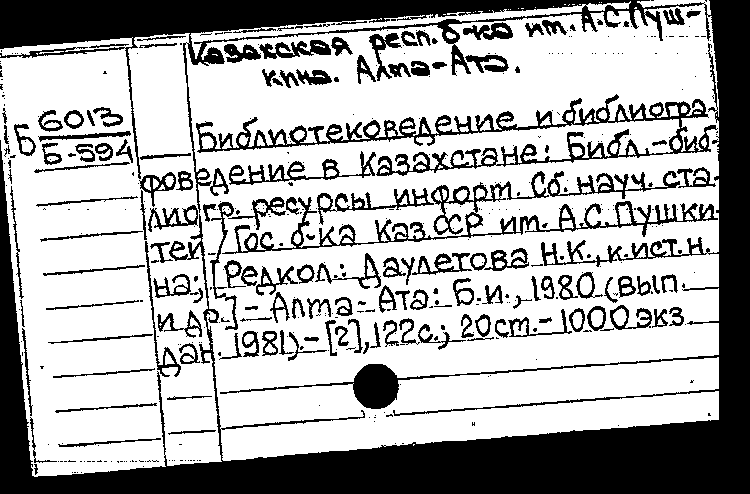 Казахская респ. б-ка им. А.С.Пуш-
кина. Алма-Ата.
Б 6013
Б-594
Библиотековедение и библиогра-
фоведение в Казахстане: Библ.-биб-
лиогр. ресурсы информ. Сб. науч. ста-
тей / Гос. б-ка Каз.ССР им. А.С.Пушки-
на; [Редкол.: Даулетова Н.К., к.ист.н.
и др.] - Алма-Ата: Б.и., 1980 (вып.
дан. 1981). - [2], 122с.; 20см. - 1000 экз.